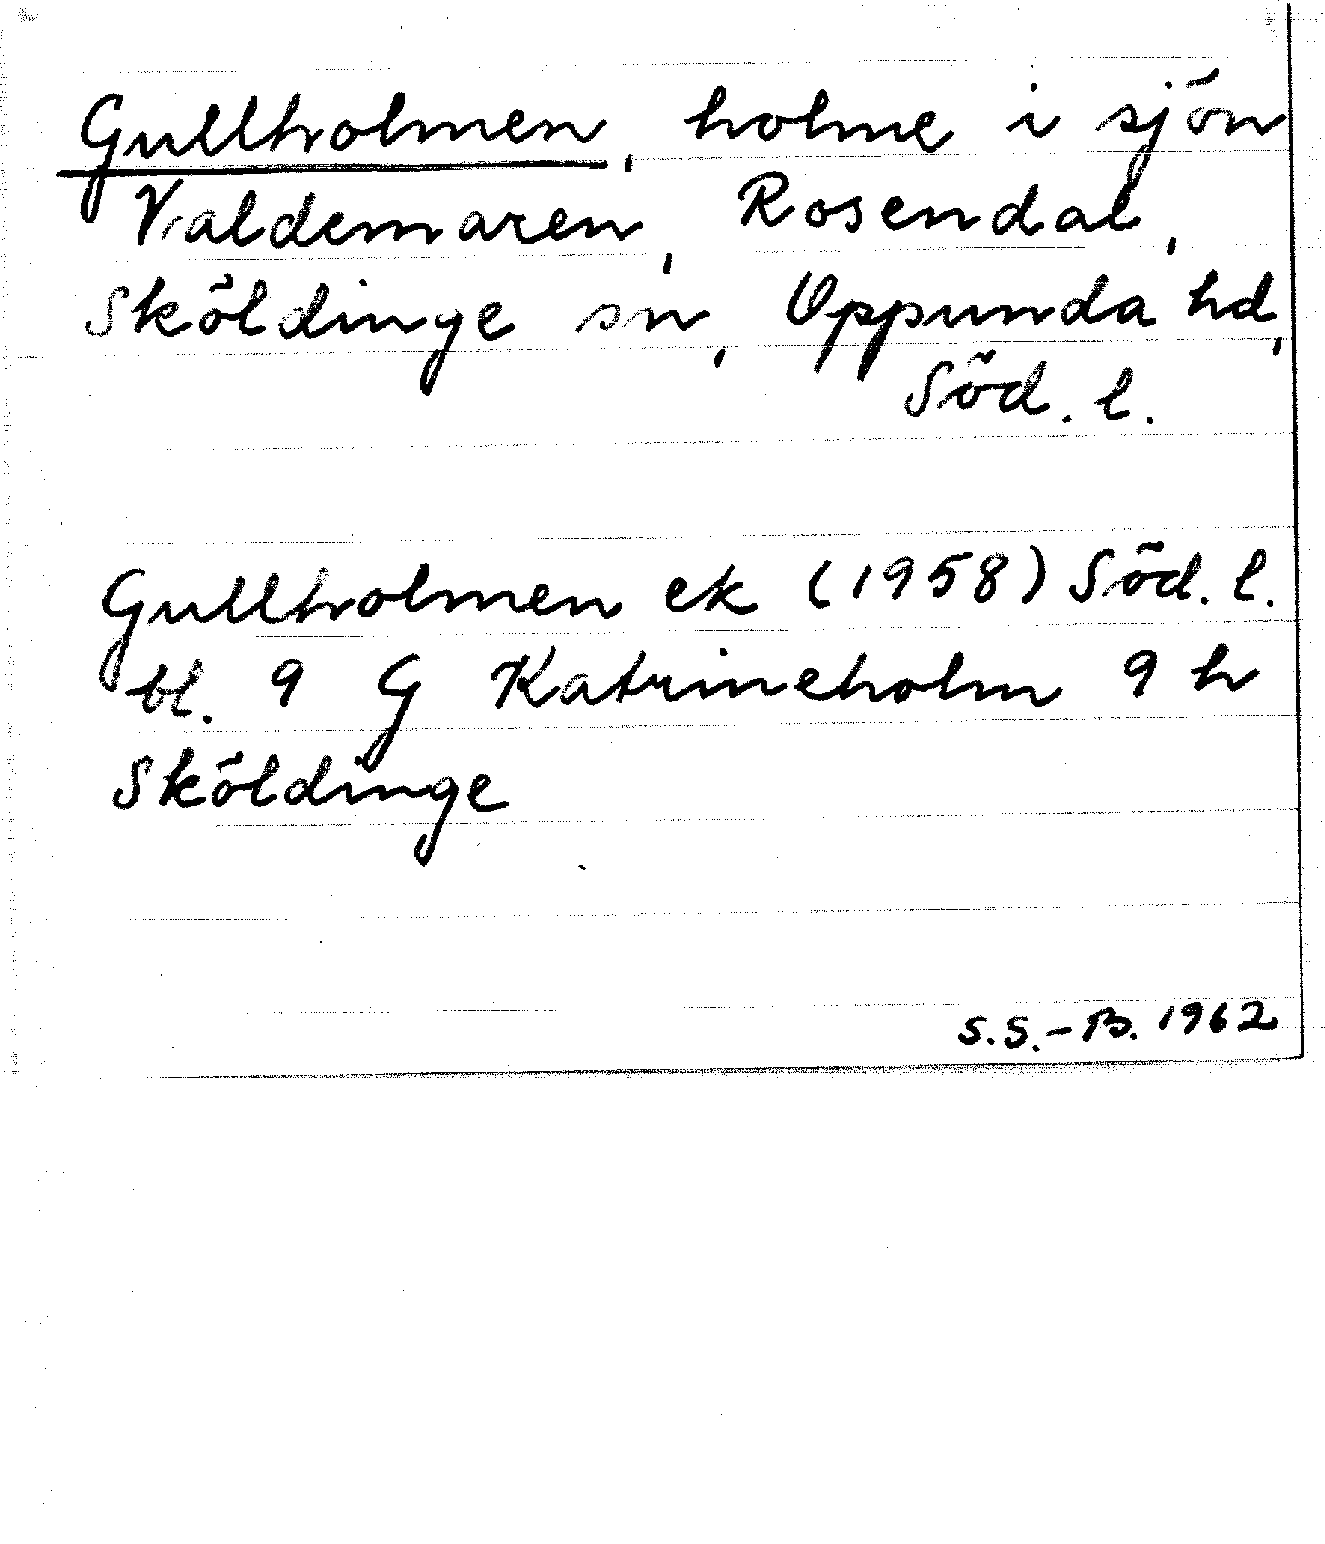 Gullholmen, holme i sjön
Valdemaren, Rosendal,
Sköldinge sn, Oppunda hd,
Söd. l.
Gullholmen ek (1958) Söd. l.
bl. 9 G Katrineholm 9 h
Sköldinge
S.S.-B. 1962